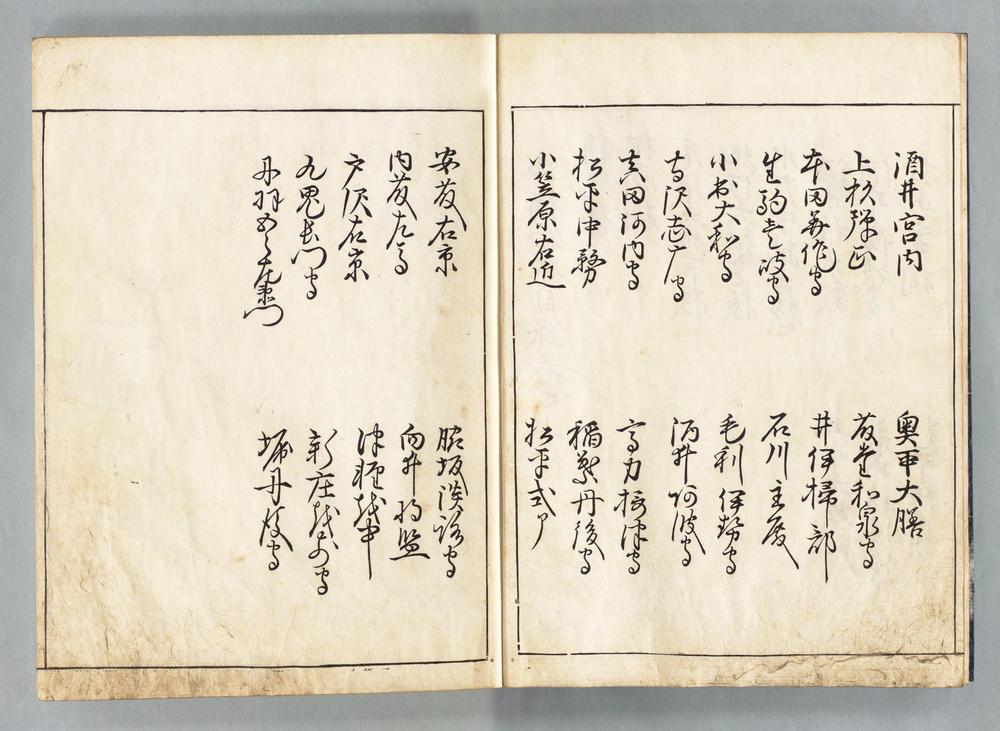 酒井宮内　奥平大膳
上杉弾正　藤堂和泉守
本田美作守　井伊掃部
生駒壱岐守　石川主殿
小出大和守　毛利伊勢守
寺沢志广守　酒井阿波守
真田河内守　高力摂津守
松平中務　稲葉丹後守
小笠原右近　松平式ア
安藤右京　脇坂淡路守
内藤左馬　向井将監
戸沢右京　津軽越中
九鬼長門守　新庄越前守
丹羽五郎左衛門　堀丹後守